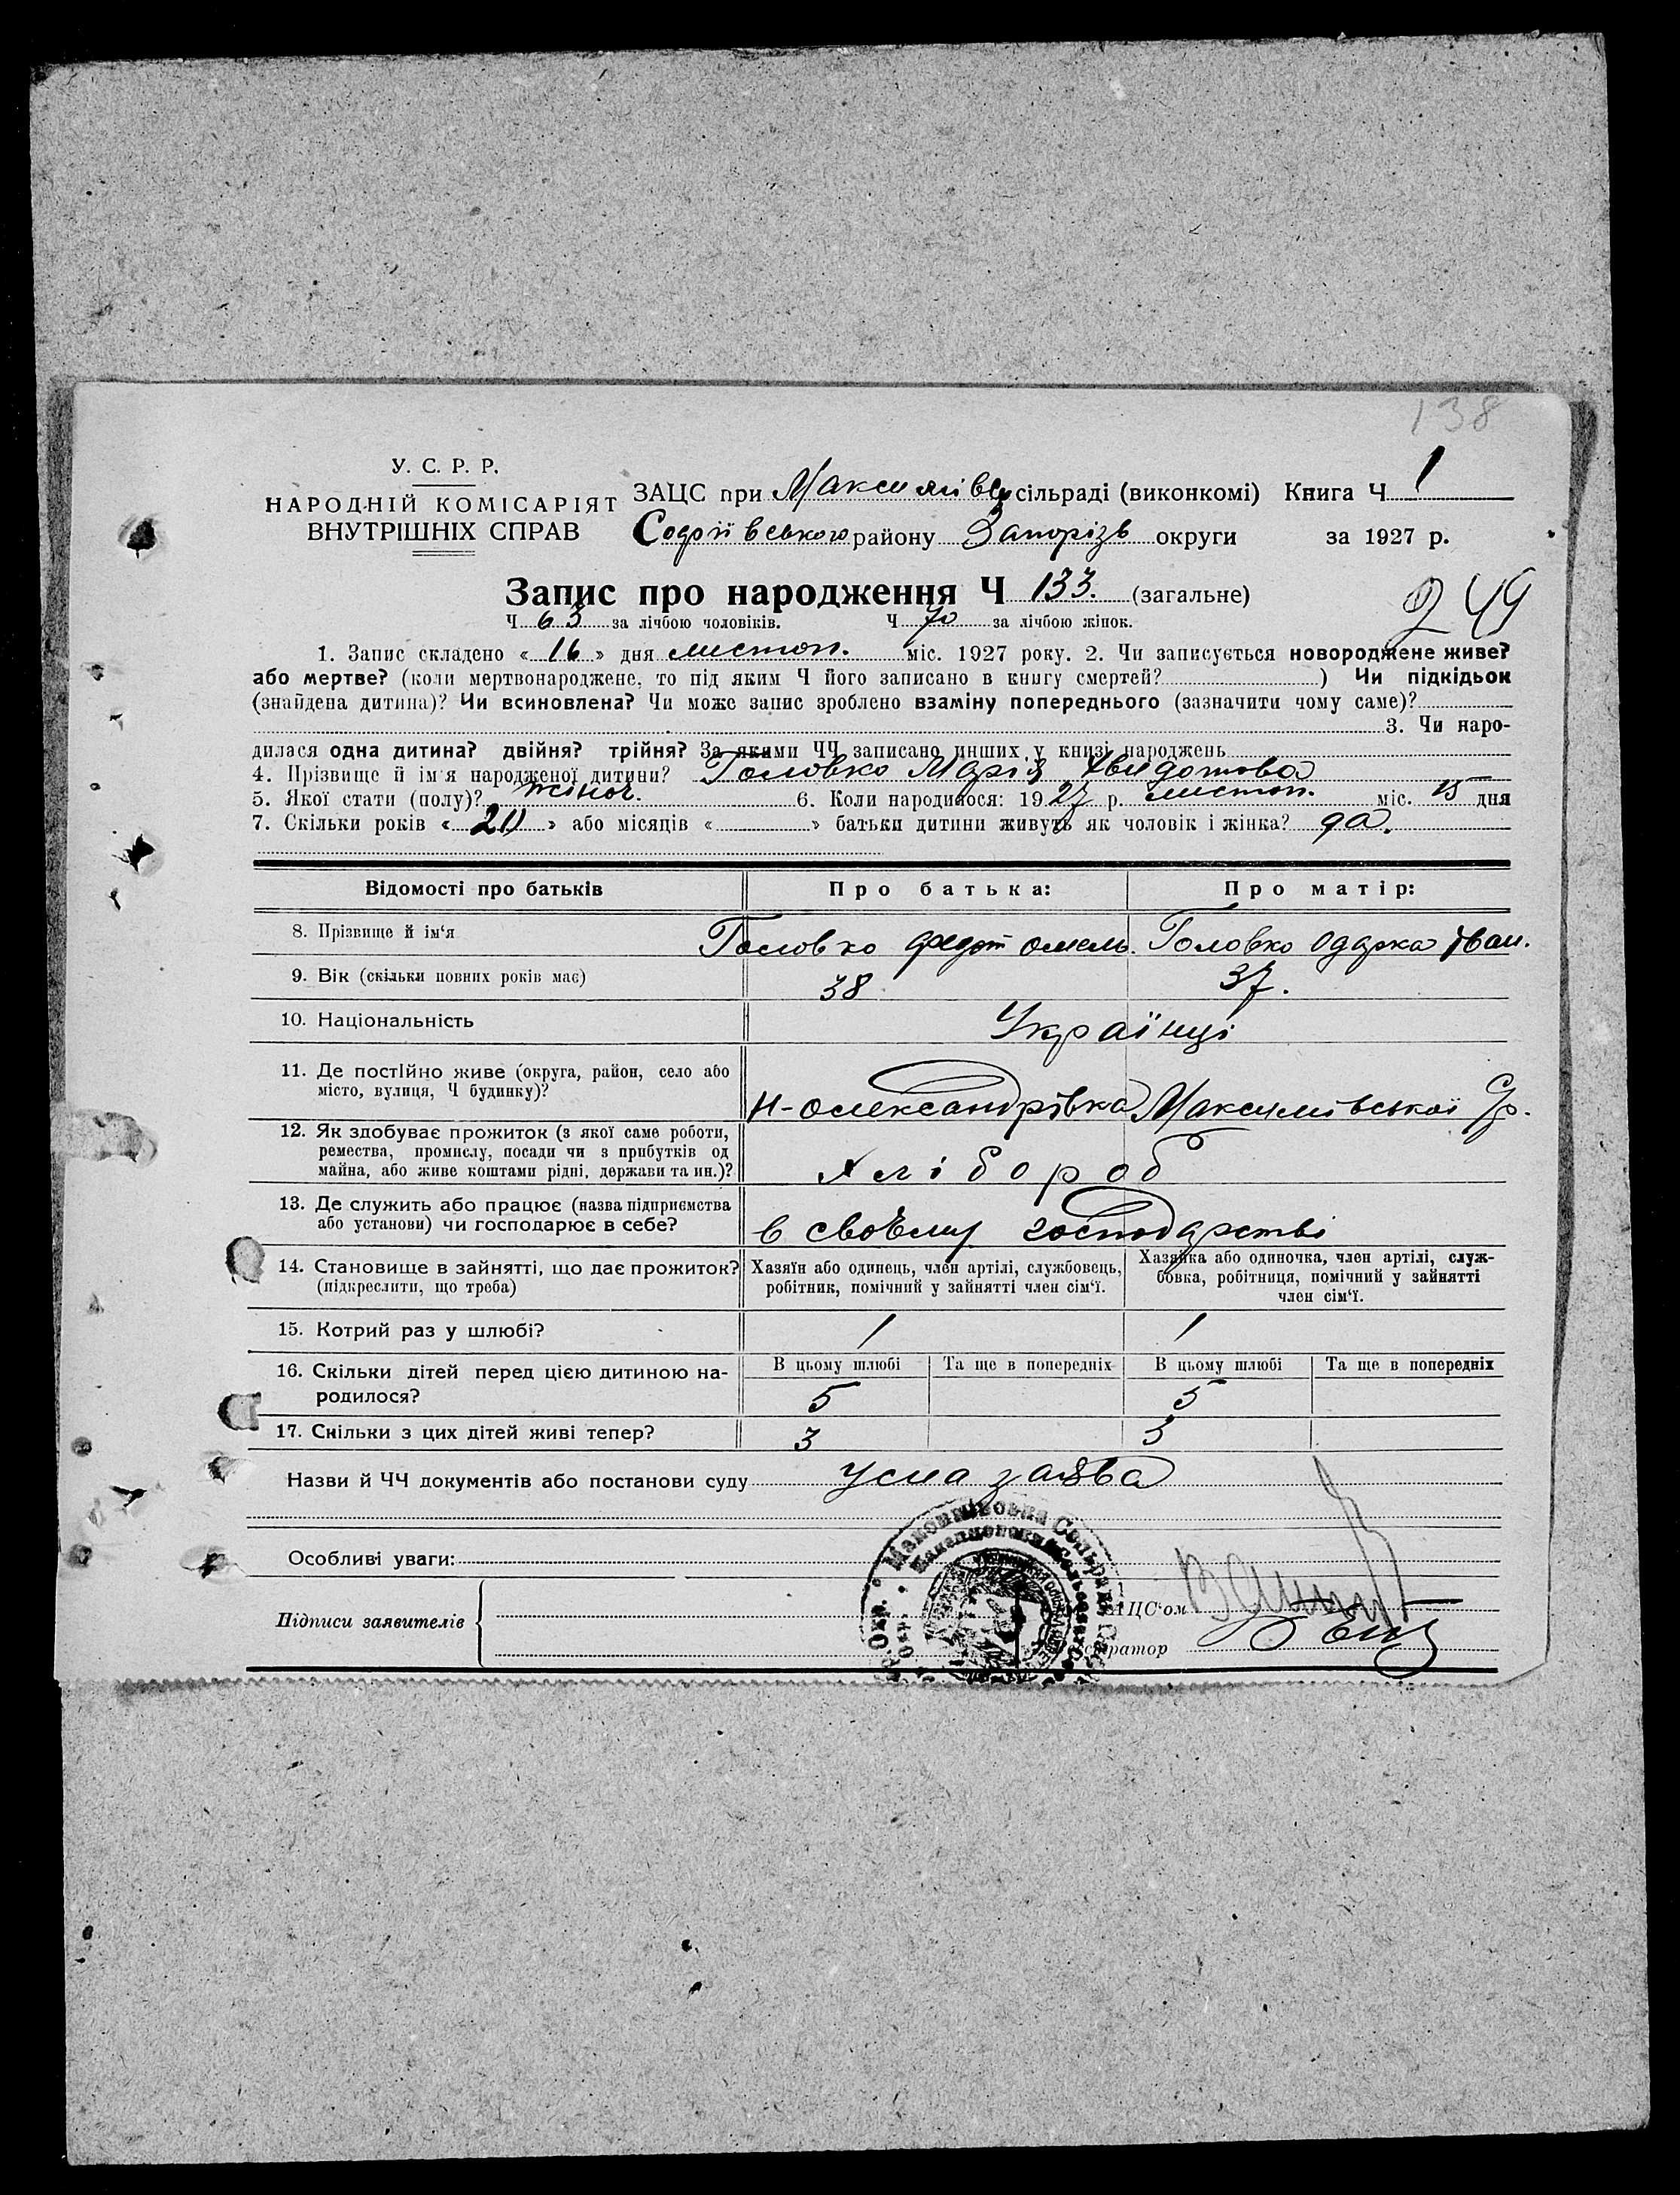 138
У. С. Р. Р.
НАРОДНІЙ КОМІСАРІЯТ
ВНУТРІШНІХ СПРАВ
ЗАЦС при Максимівці сільраді (виконкомі) Книга Ч 1
Софіївського району Запорізь округи за 1927 р.
Запис про народження Ч 133. (загальне)
249
Ч 63 за лічбою чоловіків. Ч 70 за лічбою жінок.
1. Запис складено « 16 » дня листоп. міс. 1927 року. 2. Чи записується новороджене живе?
або мертве? (коли мертвонароджене, то під яким Ч його записано в книгу смертей? ) Чи підкідьок
(знайдена дитина)? Чи всиновлена? Чи може запис зроблено взаміну попереднього (зазначити чому саме)?
3. Чи наро-
дилася одна дитина? двійня? трійня? За якими ЧЧ записано инших у книзі народжень
4. Прізвище й ім'я народженої дитини? Головко Марія Хведотова
5. Якої стати (полу)? жіноч. 6. Коли народилося: 1927 р. листоп. міс. 15 дня
7. Скільки років « 20 » або місяців « » батьки дитини живуть як чоловік і жінка? да.
Відомості про батьків Про батька: Про матір:
8. Прізвище й ім'я Головко Федот Омель. Головко Одарка Іван.
9. Вік (скільки повних років має) 38 37.
10. Національність Українці
11. Де постійно живе (округа, район, село або
місто, вулиця, Ч будинку)? Н-Олександрівка Максимівської С/р.
12. Як здобуває прожиток (з якої саме роботи,
ремества, промислу, посади чи з прибутків од
майна, або живе коштами рідні, держави та ин.)? Хлібороб
13. Де служить або працює (назва підприємства
або установи) чи господарює в себе? в своєму господарстві
14. Становище в зайнятті, що дає прожиток? (підкреслити, що треба)
Хазяїн або одинець, член артілі, службовець,
робітник, помічний у зайнятті член сім'ї.
Хазяйка або одиночка, член артілі, служ-
бовка, робітниця, помічний у зайнятті
член сім'ї.
15. Котрий раз у шлюбі? 1 1
16. Скільки дітей перед цією дитиною на-
родилося?
В цьому шлюбі Та ще в попередніх В цьому шлюбі Та ще в попередніх
5 5
17. Скільки з цих дітей живі тепер? 3 3
Назви й ЧЧ документів або постанови суду усна заява
Особливі уваги:
Підписи заявителів
АЦС'ом
ратор